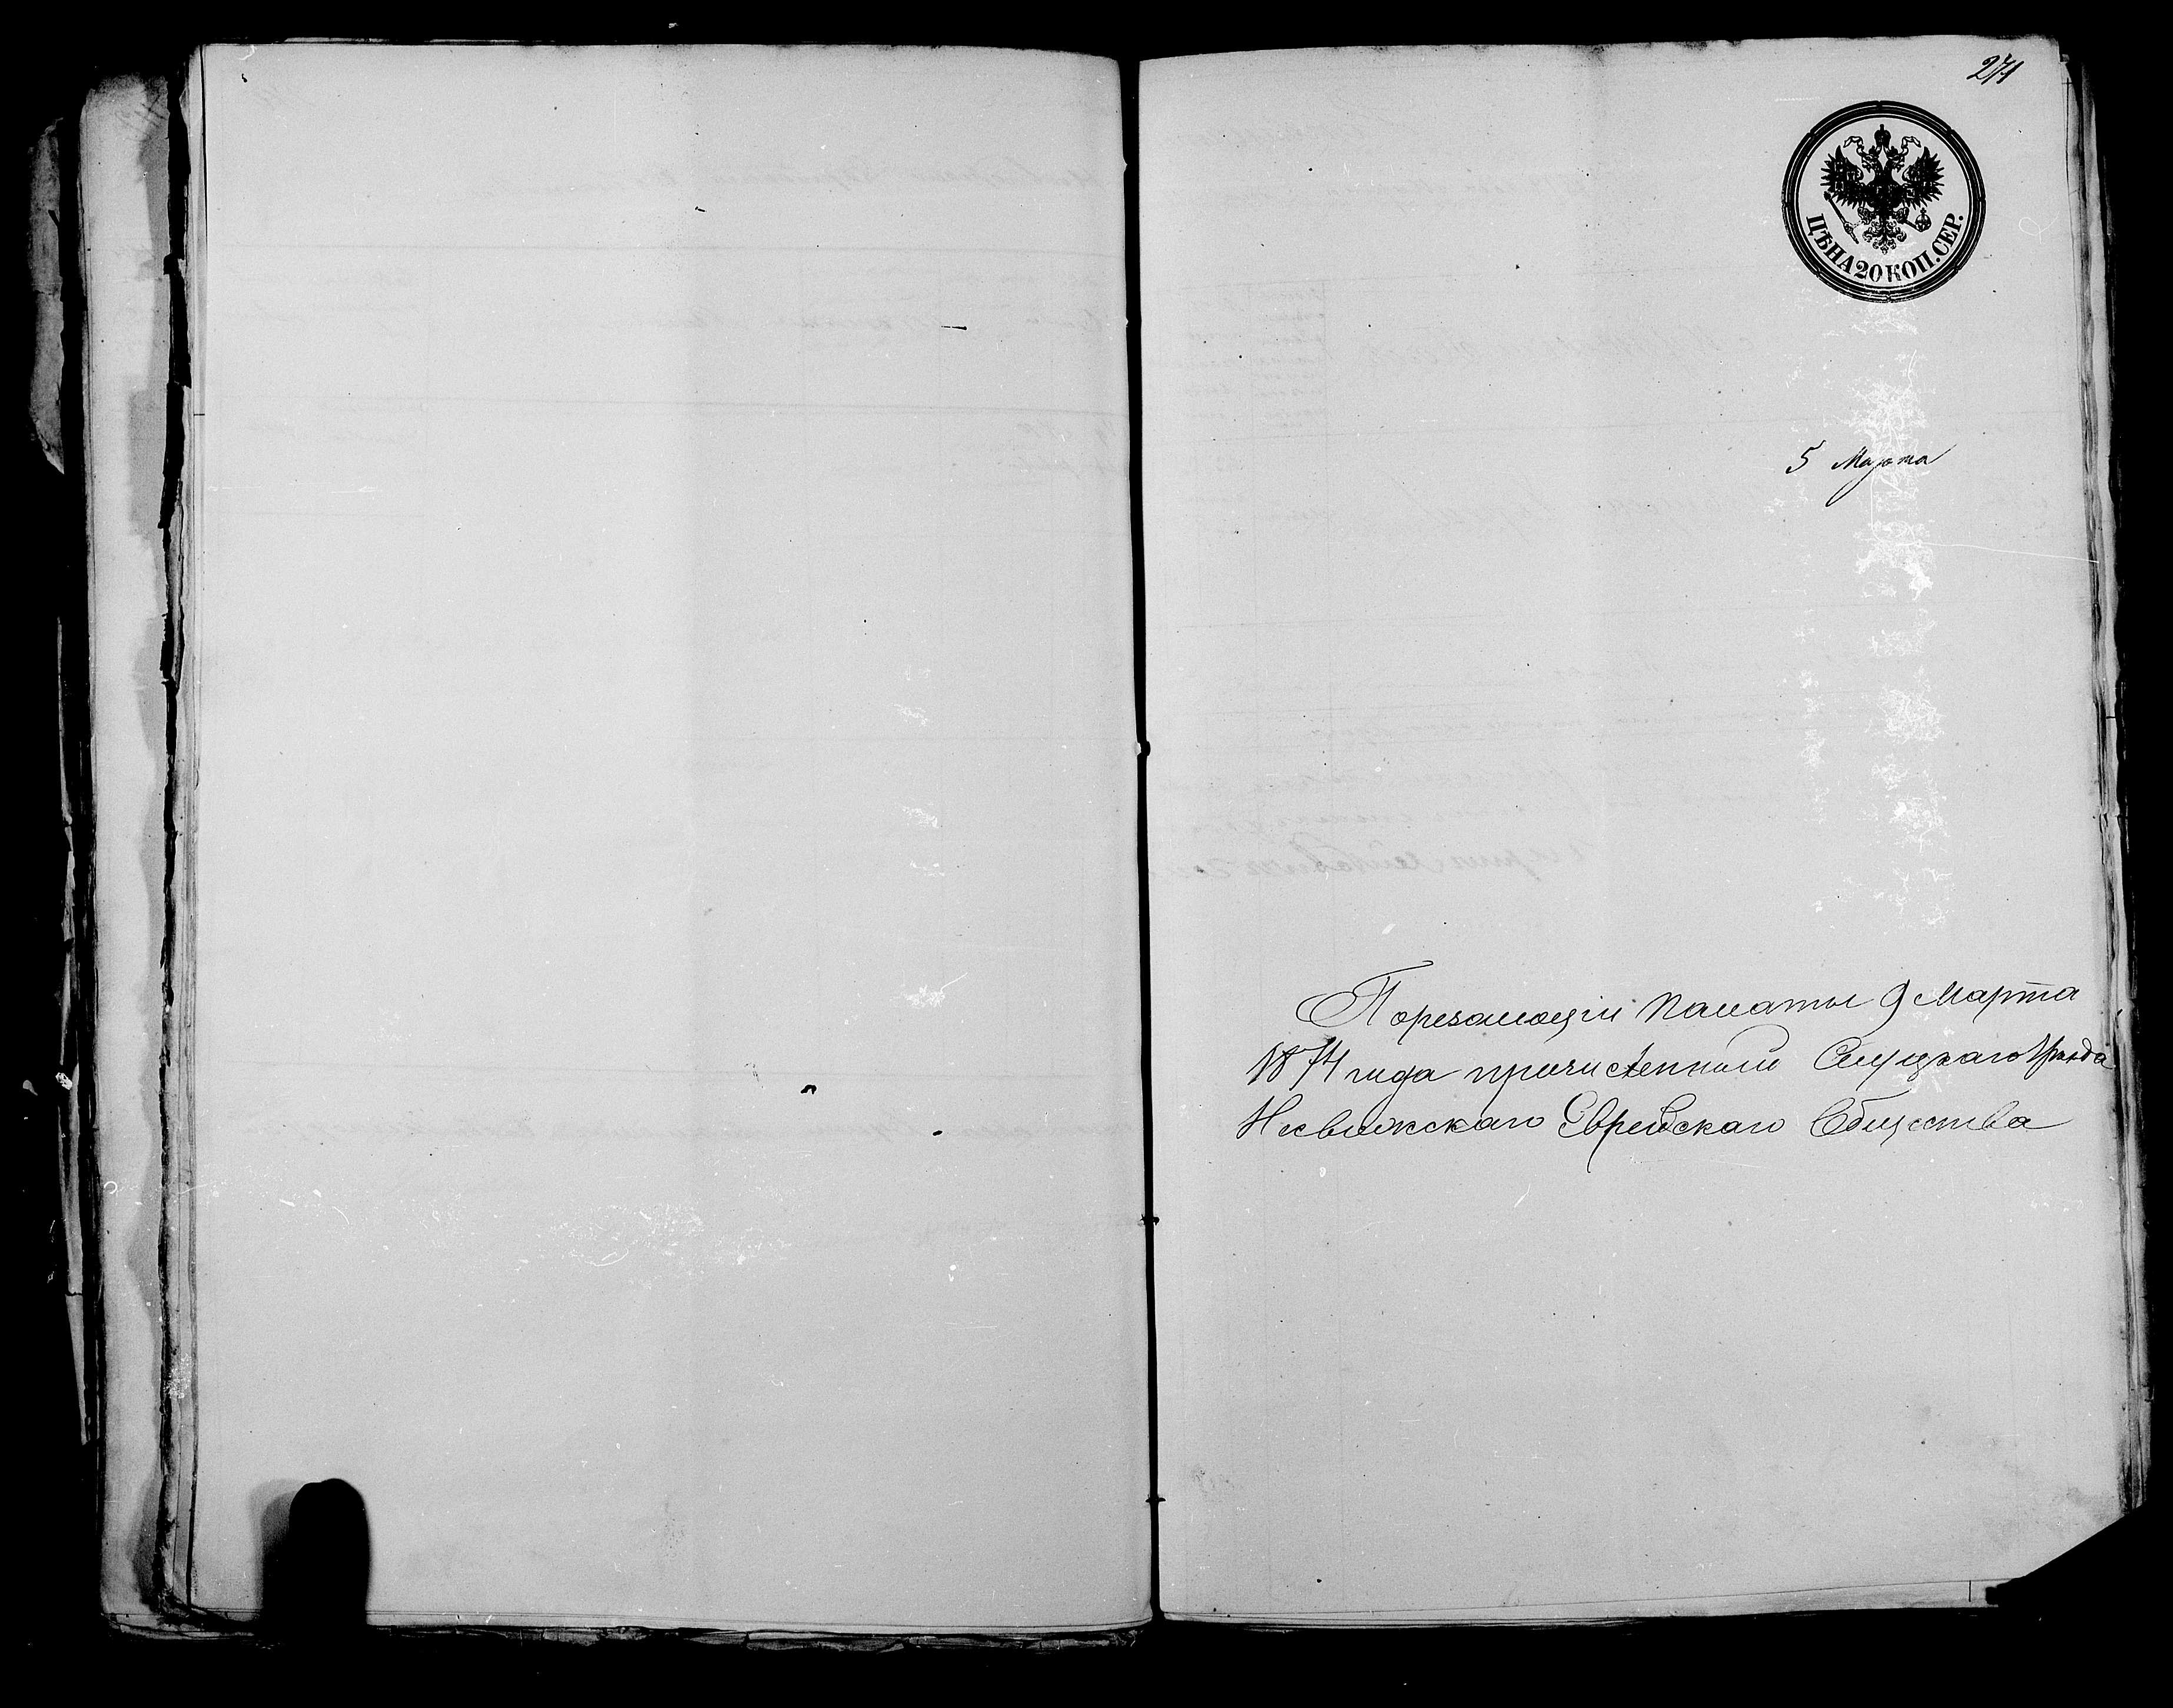 271
ЦѢНА 20 КОП. СЕР.
5 Марта
По резолюціи Палаты 9 Марта
1874 года причисленный Слуцкаго уѣзда
Несвижскаго Еврейскаго Общества